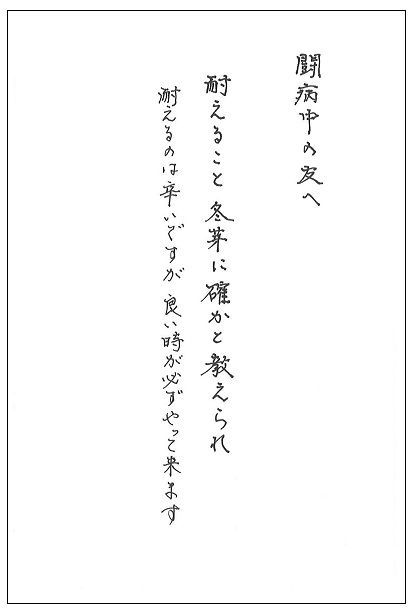 闘病中の友へ
耐えること 冬芽に確かと教えられ
耐えるのは辛いですが 良い時が必ずやって来ます